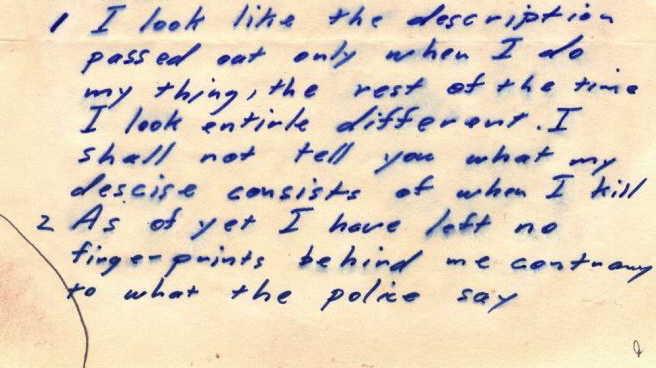 1 I look like the description
passed out only when I do
my thing, the rest of the time
I look entirle different. I
shall not tell you what my
descise consists of when I kill
2 As of yet I have left no
fingerprints behind me contrary
to what the police say